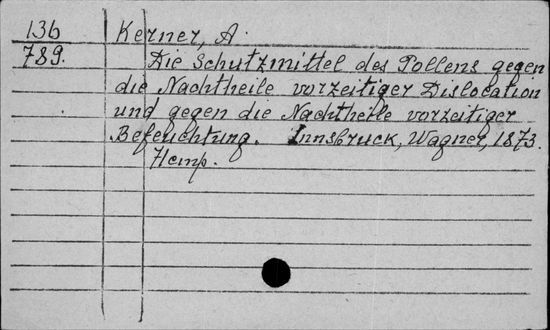 136
789.
Kerner, A.
Die Schutzmittel des Pollens gegen
die Nachtheile vorzeitiger Dislocation
und gegen die Nachtheile vorzeitiger
Befeuchtung. Innsbruck, Wagner, 1873.
Hemp.